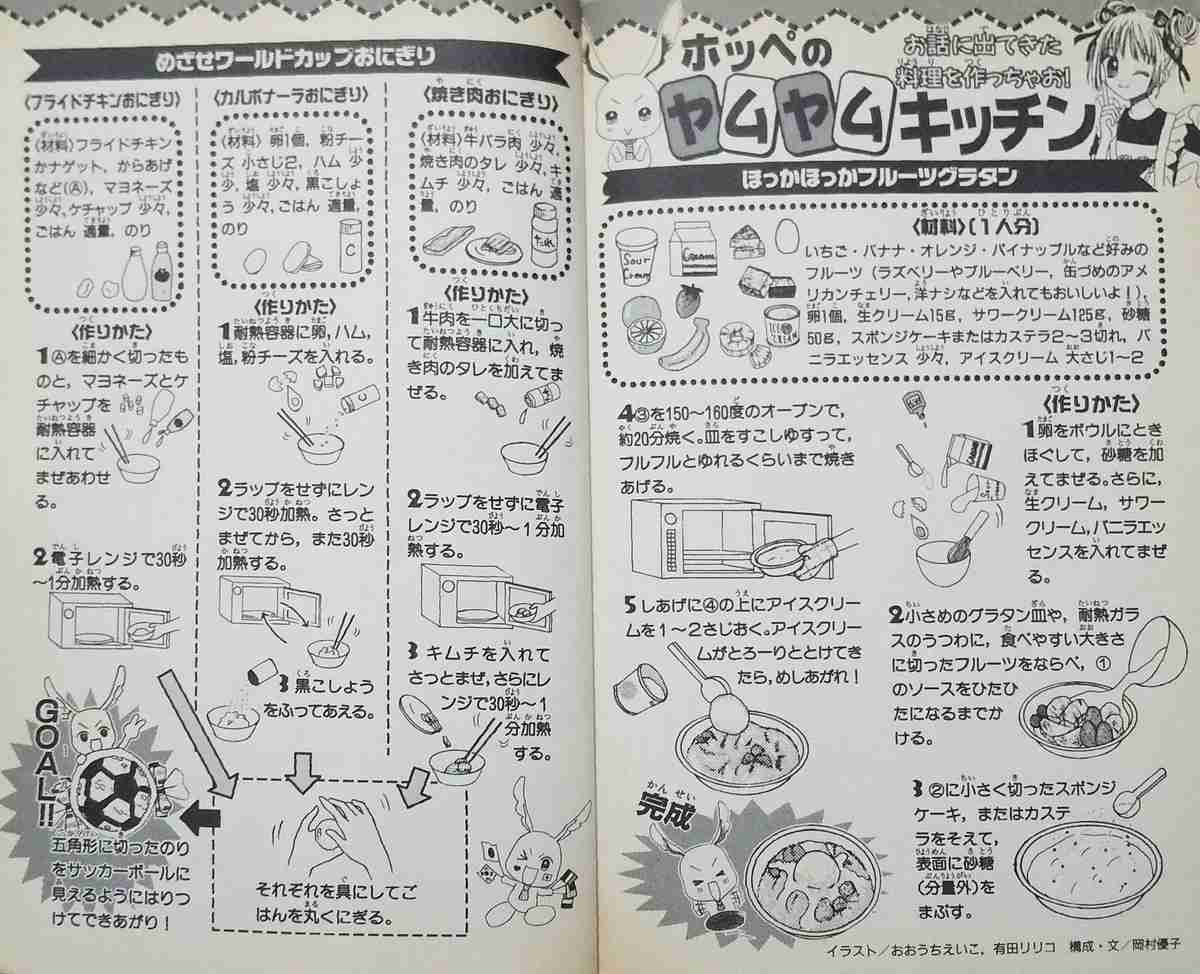 ホッペの
ヤムヤムキッチン
お話に出てきた
料理を作っちゃお!
ほっかほっかフルーツグラタン
〈材料〉(1人分)
いちご・バナナ・オレンジ・パイナップルなど好みの
フルーツ(ラズベリーやブルーベリー，缶づめのアメ
リカンチェリー，洋ナシなどを入れてもおいしいよ!)，
卵1個，生クリーム15g，サワークリーム125g，砂糖
50g，スポンジケーキまたはカステラ2〜3切れ，バ
ニラエッセンス 少々，アイスクリーム 大さじ1〜2
Sour
Cream
Cream
ICE
CREAM
〈作りかた〉
1卵をボウルにとき
ほぐして，砂糖を加
えてまぜる。さらに，
生クリーム，サワー
クリーム，バニラエッ
センスを入れてまぜ
る。
2小さめのグラタン皿や，耐熱ガラ
スのうつわに，食べやすい大きさ
に切ったフルーツをならべ，①
のソースをひたひ
たになるまでか
ける。
3②に小さく切ったスポンジ
ケーキ，またはカステ
ラをそえて，
表面に砂糖
(分量外)を
まぶす。
4③を150〜160度のオーブンで，
約20分焼く。皿をすこしゆすって，
フルフルとゆれるくらいまで焼き
あげる。
5しあげに④の上にアイスクリー
ムを1〜2さじおく。アイスクリー
ムがとろーりととけてき
たら，めしあがれ!
完成
イラスト/おおうちえいこ，有田リリコ 構成・文/岡村優子
めざせワールドカップおにぎり
〈焼き肉おにぎり〉
〈材料〉牛バラ肉 少々，
焼き肉のタレ 少々，キ
ムチ 少々，ごはん 適
量，のり
〈作りかた〉
1牛肉を一口大に切っ
て耐熱容器に入れ，焼
き肉のタレを加えてま
ぜる。
2ラップをせずに電子
レンジで30秒〜1分加
熱する。
3キムチを入れて
さっとまぜ，さらにレ
ンジで30秒〜1
分加熱
する。
〈カルボナーラおにぎり〉
〈材料〉卵1個，粉チー
ズ 小さじ2，ハム 少
少，塩 少々，黒こしょ
う 少々，ごはん 適量，
のり
〈作りかた〉
1耐熱容器に卵，ハム，
塩，粉チーズを入れる。
2ラップをせずにレン
ジで30秒加熱。さっと
まぜてから，また30秒
加熱する。
3黒こしょう
をふってあえる。
〈フライドチキンおにぎり〉
〈材料〉フライドチキン
かナゲット，からあげ
など(A)，マヨネーズ
少々，ケチャップ 少々，
ごはん 適量，のり
〈作りかた〉
1Ⓐを細かく切ったも
のと，マヨネーズとケ
チャップを
耐熱容器
に入れて
まぜあわせ
る。
2電子レンジで30秒
〜1分加熱する。
それぞれを具にしてご
はんを丸くにぎる。
GOAL!!
五角形に切ったのり
をサッカーボールに
見えるようにはりつ
けてできあがり!